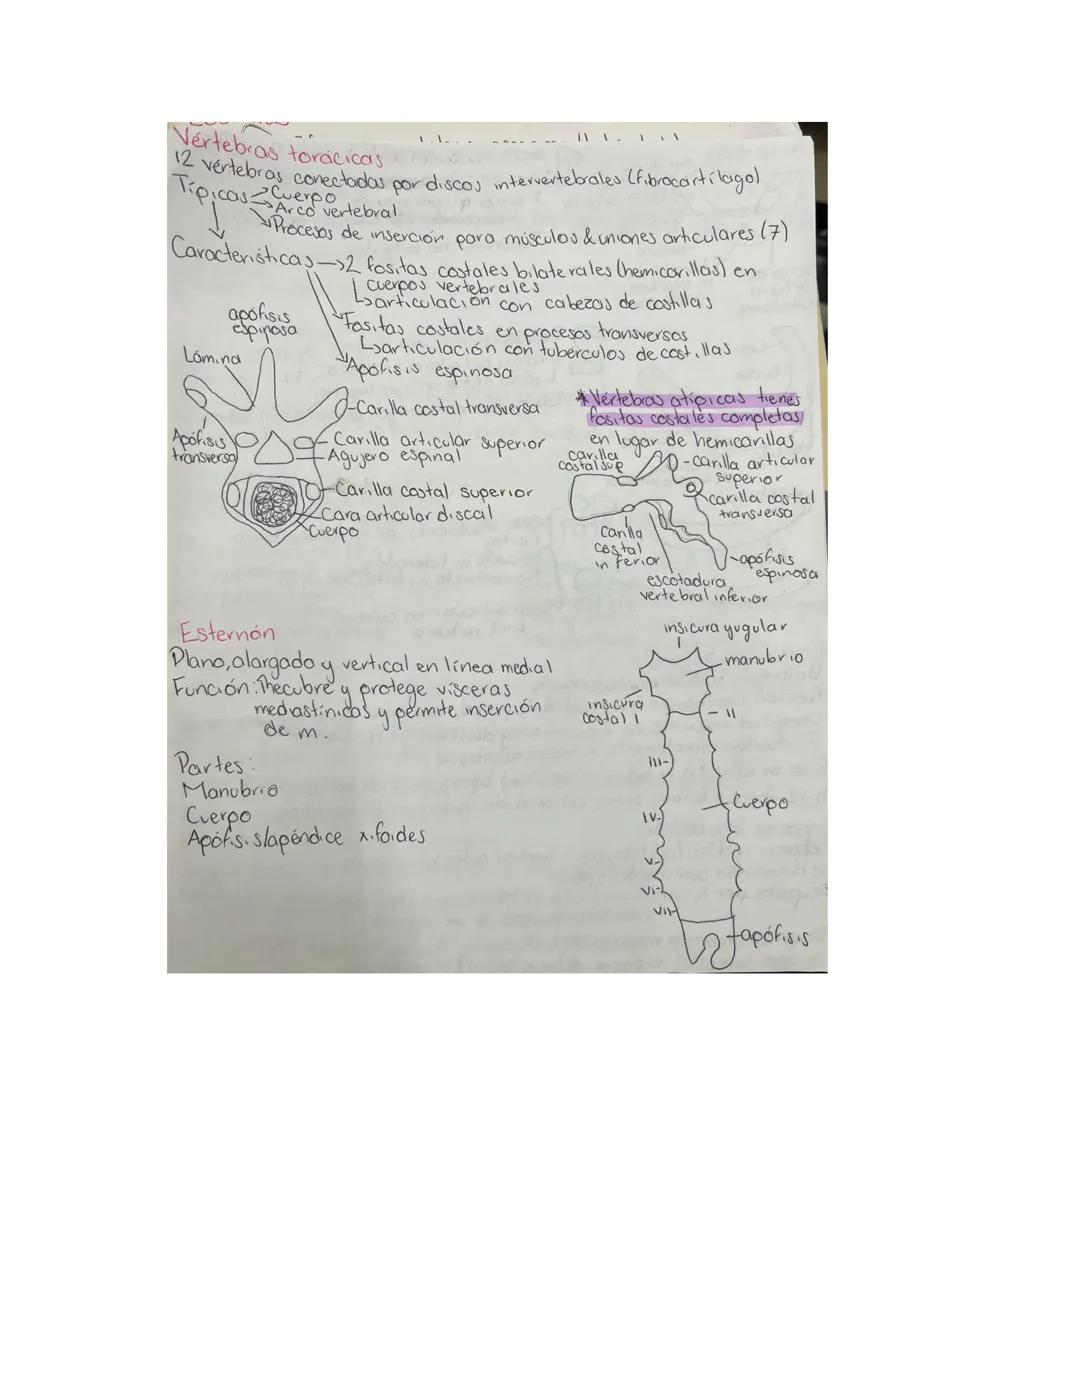 Vértebras torácicas
12 vértebras conectadas por discos intervertebrales (fibrocartílago)
Típicas → Cuerpo
→ Arco vertebral
→ Procesos de inserción para músculos & uniones articulares (7)
Características → 2 fositas costales bilaterales (hemicarillas) en
cuerpos vertebrales
↳ articulación con cabezas de costillas
Fositas costales en procesos transversos
↳ articulación con tubérculos de costillas
Apófisis espinosa
apófisis
espinosa
Lámina
Apófisis
transversa
-Carilla costal transversa
Carilla articular superior
Agujero espinal
Carilla costal superior
Cara articular discal
Cuerpo
* Vértebras atípicas tienes
fositas costales completas
en lugar de hemicarillas
carilla
costal sup
-carilla articular
superior
carilla costal
transversa
Carilla
costal
inferior
apófisis
espinosa
escotadura
vertebral inferior
Esternón
Plano, alargado y vertical en línea medial
Función: Recubre y protege vísceras
mediastínicas y permite inserción
de m.
Partes:
Manubrio
Cuerpo
Apófisis/apéndice xifoides
insicura yugular
manubrio
insicura
costal I
- II
III-
Cuerpo
IV-
V-
VI-
VII-
apófisis